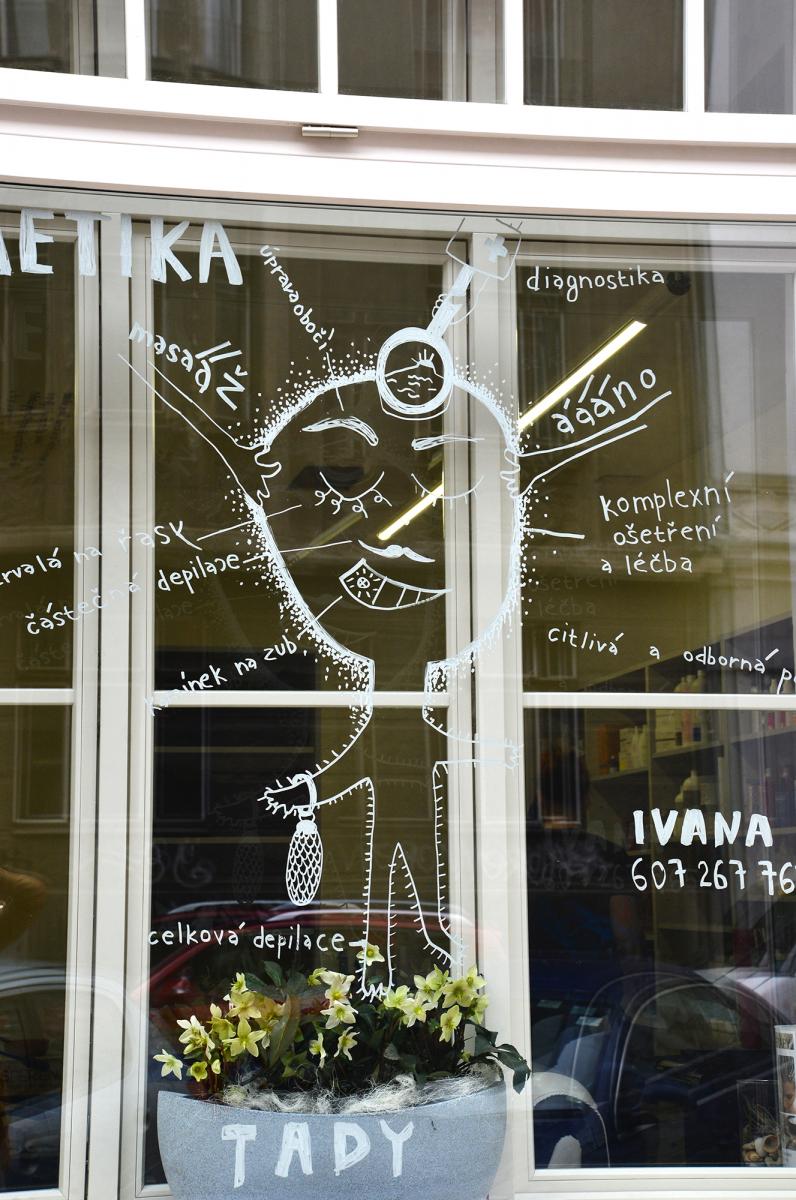 METIKA
úprava obočí
diagnostika
masááž
áááno
komplexní
ošetření
a léčba
rvalá na řasy
částečná depilace
citlivá a odborná
kamínek na zub
IVANA
607 267 76
celková depilace
TADY